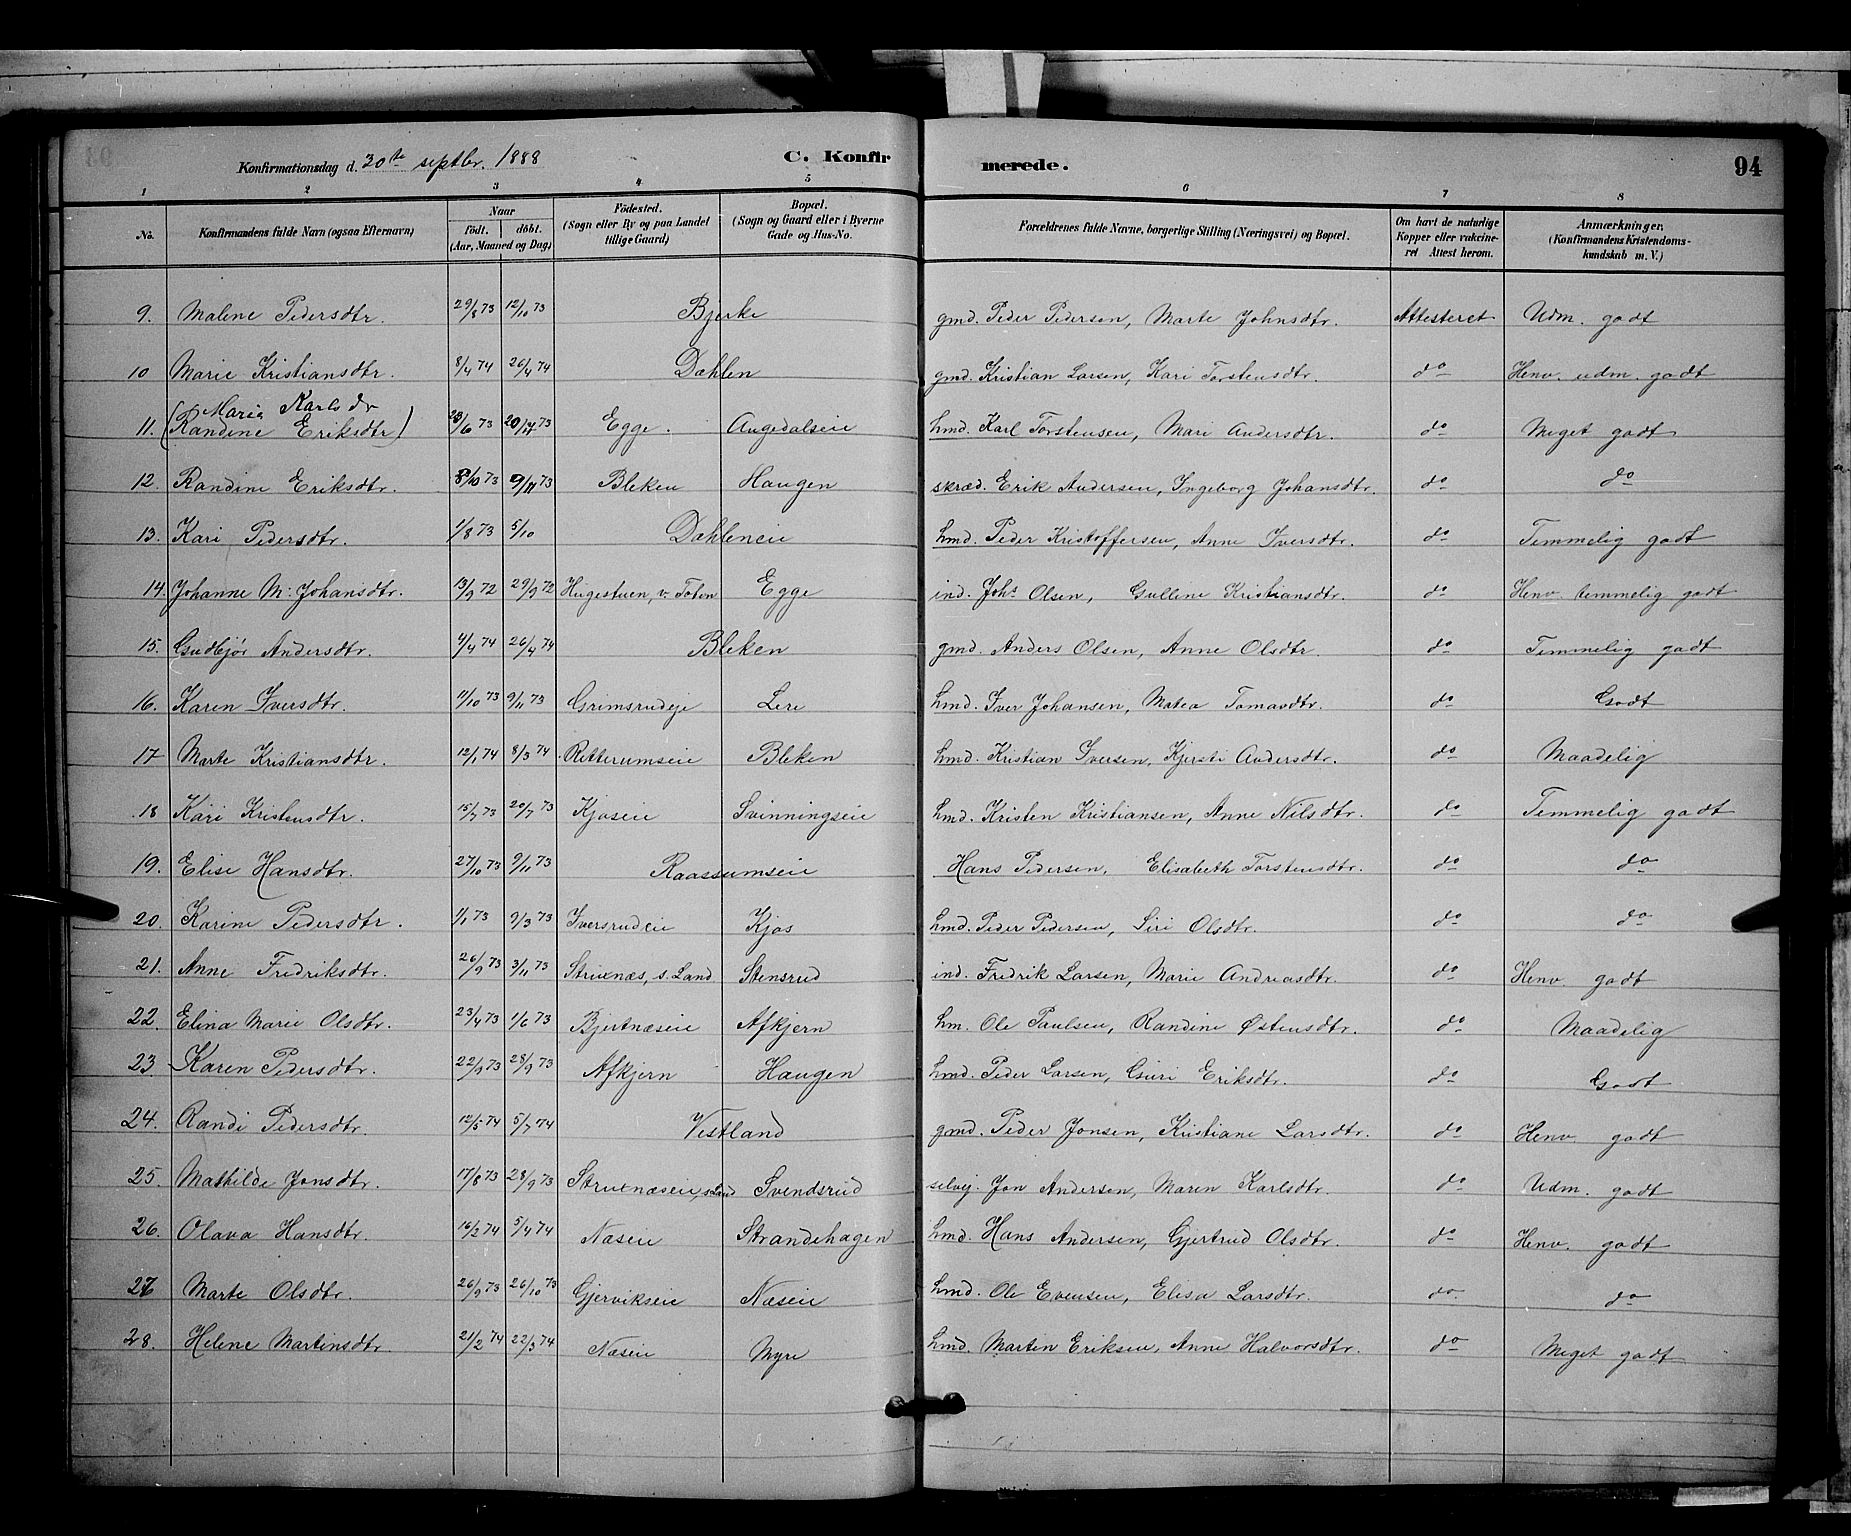 Konfirmationsdag d. 30te septbr. 1888 C. Konfirmerede. 94
1 2 3 4 5 6 7 8
No. Konfirmandens fulde Navn (ogsaa Efternavn) Naar født. døbt. (Aar, Maaned og Dag) Fødested. (Sogn eller By og paa Landet tillige Gaard) Bopæl. (Sogn og Gaard eller i Byerne Gade og Hus-No. Forældrenes fulde Navne, borgerlige Stilling (Næringsvei) og Bopæl. Om havt de naturlige Kopper eller vakcineret Attest herom. Anmærkninger. (Konfirmandens Kristendomskundskab m. V.)
9. Malene Pedersdtr. 29/8 73 12/10 73 Bjerke gmd. Peder Pedersen, Marte Johnsdtr. Attesteret Udm. godt
10 Marie Kristiansdtr. 8/4 74 26/4 74 Dæhlen gmd. Kristian Larsen, Kari Torstensdtr. do Henv. udm. godt
Maria Karlsdr
11. (Randine Eriksdtr) 23/6 73 20/7 73 Egge. Augedalseie hmd. Karl Torstensen, Mari Andersdtr. do Meget godt
12. Randine Eriksdtr. 8/10 73 9/11 73 Bleken Haugen skræd. Erik Andersen, Ingeborg Johansdtr. do do
13. Kari Pedersdtr. 1/8 73 5/10 Dæhleneie hmd. Peder Kristoffersen, Anne Iversdtr. do Temmelig godt
14. Johanne M. Johansdtr. 13/9 72 29/9 72 Hugestuen, v. Toten Egge ind. Johs Olsen, Gulline Kristiansdtr. do Henv. temmelig godt
15. Gudbjør Andersdtr. 4/4 74 26/4 74 Bleken gmd. Anders Olsen, Anne Olsdtr. do Temmelig godt
16. Karen Iversdtr. 11/10 73 9/11 73 Grimsrudeje Lere hmd. Iver Johansen, Matea Tomasdtr. do Godt
17 Marte Kristiansdtr. 12/1 74 8/3 74 Retterumseie Bleken hmd. Kristian Iversen, Kjersti Andersdtr. do Maadelig
18 Kari Kristensdtr. 15/7 73 20/7 73 Kjoseie Svinningseie hmd. Kristen Kristiansen, Anne Nilsdtr. do Temmelig godt
19. Elise Hansdtr. 27/10 73 9/11 73 Raassumseie Hans Pedersen, Elisabeth Torstensdtr. do do
20. Karine Pedersdtr. 1/1 73 9/3 73 Iversrudeie Kjos hmd. Peder Pedersen, Siri Olsdtr. do do
21. Anne Fredriksdtr. 26/9 73 3/11 73 Struenæs, s. Land Stensrud ind. Fredrik Larsen, Marie Andreasdtr. do Henv. godt
22. Elina Marie Olsdtr. 23/4 73 1/6 73 Bjertnæseie Afkjern hm. Ole Paulsen, Randine Østensdtr. do Maadelig
23 Karen Pedersdtr. 22/9 73 28/9 73 Afkjern Haugen hmd. Peder Larsen, Guri Eriksdtr. do Godt
24. Randi Pedersdtr 12/5 74 5/7 74 Vestland gmd. Peder Jonsen, Kristiane Larsdtr. do Henv godt
25. Mathilde Jonsdtr. 17/8 73 28/9 73 Struenæseie, s. Land Svendsrud selvej. Jon Andersen, Maren Karlsdtr. do Udm. godt
26. Olava Hansdtr. 16/2 74 5/4 74 Næseie Strandehagen hmd. Hans Andersen, Gjertrud Olsdtr. do Henv. godt
27 Marte Olsdtr. 26/9 73 26/10 73 Gjervikseie Næseie hmd. Ole Evensen, Elisa Larsdtr. do do
28. Helene Martinsdtr. 21/2 74 22/3 74 Næseie Myre hmd. Martin Eriksen, Anne Halvorsdtr. do Meget godt